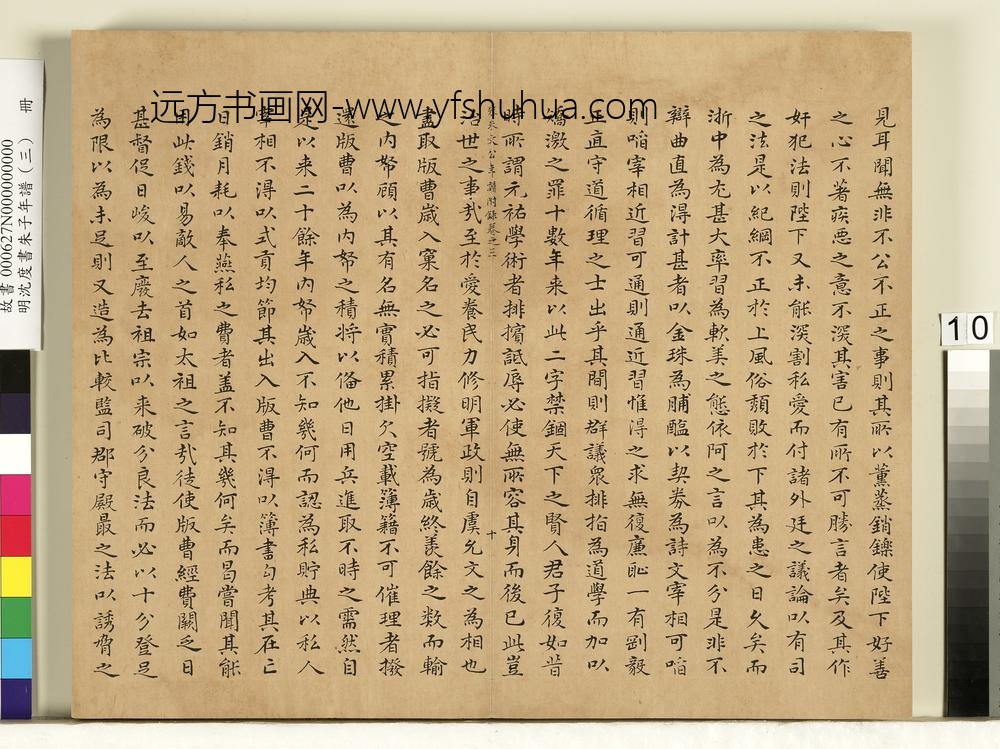 見耳聞無非不公不正之事則其所以薰蒸銷鑠使陛下好善
之心不著疾惡之意不深其害已有所不可勝言者矣及其作
奸犯法則陛下又未能深割私愛而付諸外廷之議論以有司
之法是以紀綱不正於上風俗頹敗於下其為患之日久矣而
浙中為尤甚大率習為軟美之態依阿之言以為不分是非不
辯曲直為得計甚者以金珠為脯醢以契券為詩文宰相可啗
則啗宰相近習可通則通近習惟得之求無復廉恥一有剛毅
正直守道循理之士出乎其間則群議眾排指為道學而加以
矯激之罪十數年來以此二字禁錮天下之賢人君子復如昔
時所謂元祐學術者排擯詆辱必使無所容其身而後已此豈
朱文公年譜附錄卷之三 十
治世之事哉至於愛養民力修明軍政則自虞允文之為相也
盡取版曹歲入窠名之必可指擬者號為歲終羨餘之数而輸
之内帑顧以其有名無實積累掛欠空載簿籍不可催理者撥
還版曹以為内帑之積将以俻他日用兵進取不時之需然自
是以来二十餘年内帑歲入不知幾何而認為私貯典以私人
宰相不得以式貢均節其出入版曹不得以簿書勾考其在亡
日銷月耗以奉燕私之費者盖不知其幾何矣而曷嘗聞其能
用此錢以易敵人之首如太祖之言哉徒使版曹經費闕乏日
甚督促日峻以至廢去祖宗以來破分良法而必以十分登足
為限以為未足則又造為比較監司郡守殿最之法以誘脅之
远方书画网-www.yfshuhua.com
故書 000627N000000000
明沈度書朱子年譜(三) 冊
10